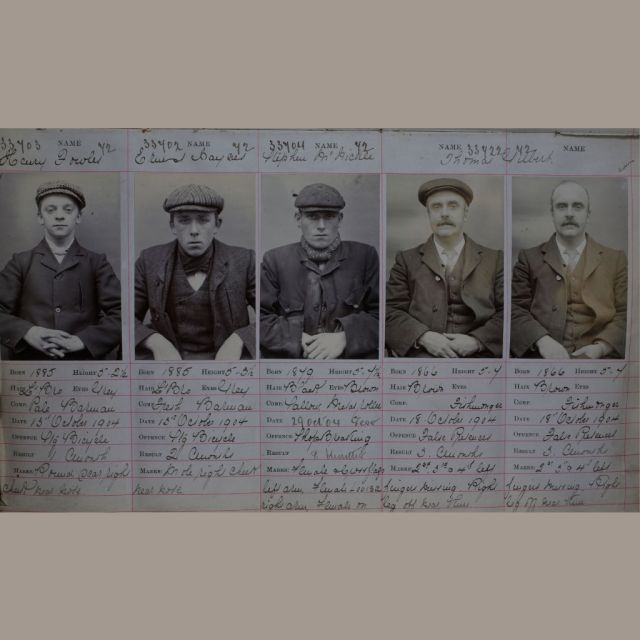 33703 NAME 72
Henry Fowler
BORN 1885 HEIGHT 5-2½
HAIR Lt Bro EYES Grey
COMP. Pale Barman
DATE 15 October 1904
OFFENCE S/g Bicycle
RESULT 1 C months
MARKS near right
cheek near nose
33702 NAME 72
Ernest Hayes
BORN 1885 HEIGHT 5-3½
HAIR Lt Bro EYES Grey
COMP. Fresh Barman
DATE 15 October 1904
OFFENCE S/g Bicycle
RESULT 2 C months
MARKS Mole right cheek
near nose
33704 NAME 72
Stephen
BORN HEIGHT 5-4½
HAIR EYES Brown
COMP. Sallow
DATE 29 Oct 04
OFFENCE Shop Breaking
RESULT 9 months
MARKS Female
left arm, Female
right arm, Female on
33722 72
NAME
Thomas
BORN 1866 HEIGHT 5-4
HAIR Brown EYES
COMP. Fishmonger
DATE 18 October 1904
OFFENCE False Pretences
RESULT 3 C months
MARKS 2nd 3rd & 4th left
fingers missing. Right
leg off near thigh
NAME
BORN 1866 HEIGHT 5-4
HAIR Brown EYES
COMP. Fishmonger
DATE 18 October 1904
OFFENCE False Pretences
RESULT 3 C months
MARKS 2nd 3rd & 4th left
fingers missing. Right
leg off near thigh